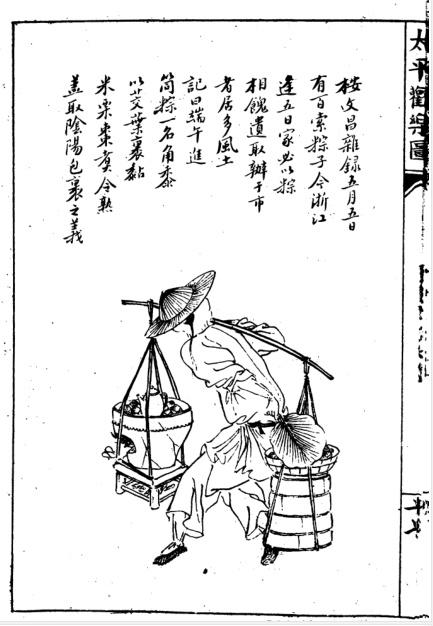 太平歡樂圖
桉文昌雜錄五月五日
有百索粽子今浙江
逢五日家必以粽
相餽遺取辦于市
者居多風土
記曰端午進
筒粽一名角黍
以苽葉裹黏
米栗棗煑令熟
蓋取陰陽包裹之義